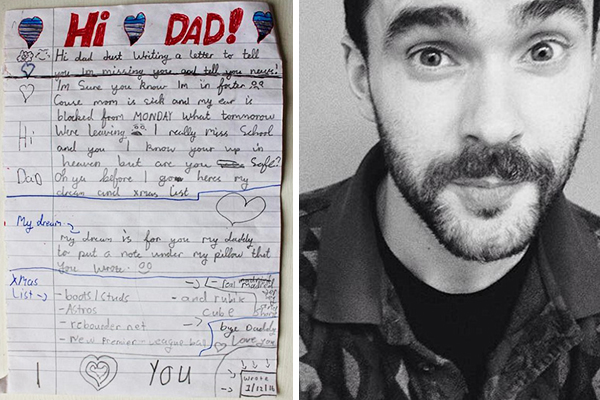 Hi DAD!
Hi dad Just Writing a letter to tell
you Im missing you and tell you news!
I'm Sure you Know Im in foster
Couse mom is sick and my ear is
blocked from MONDAY What tommorow
Hi
Were leaving I really Miss School
and you I know your up in
heaven but are you Safe?
Dad
Oh ya before I go heres my
dream and xmas list
My dream
my dream is for you my daddy
to put a note under my pillow that
you wrote.
Xmas
List
- boots/studs
- Astros
- rebounder net
- New Premier-league ball
- and rubix
cube
bye Daddy
Love you
I YOU
Wrote